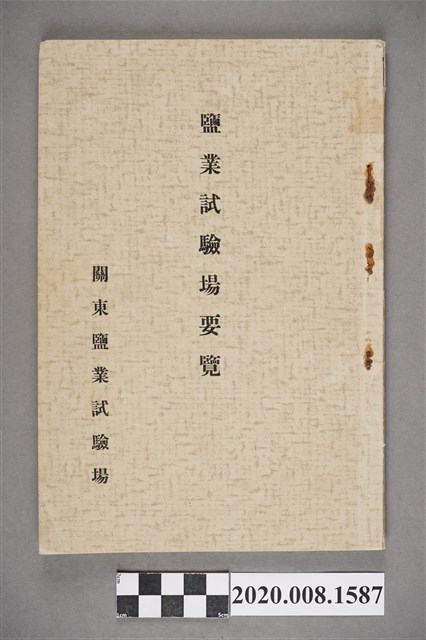 鹽業試驗場要覽
關東鹽業試驗場
2020.008.1587
1cm
5cm